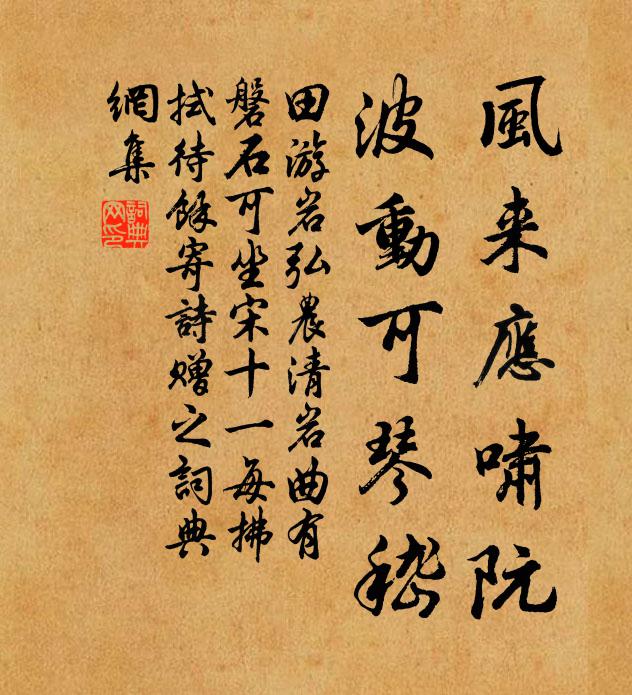 風来應嘯阮
波動可琴嵇
田游岩弘農清岩曲有
磐石可坐宋十一每拂
拭待餘寄詩贈之詞典
網集
詞典
网印